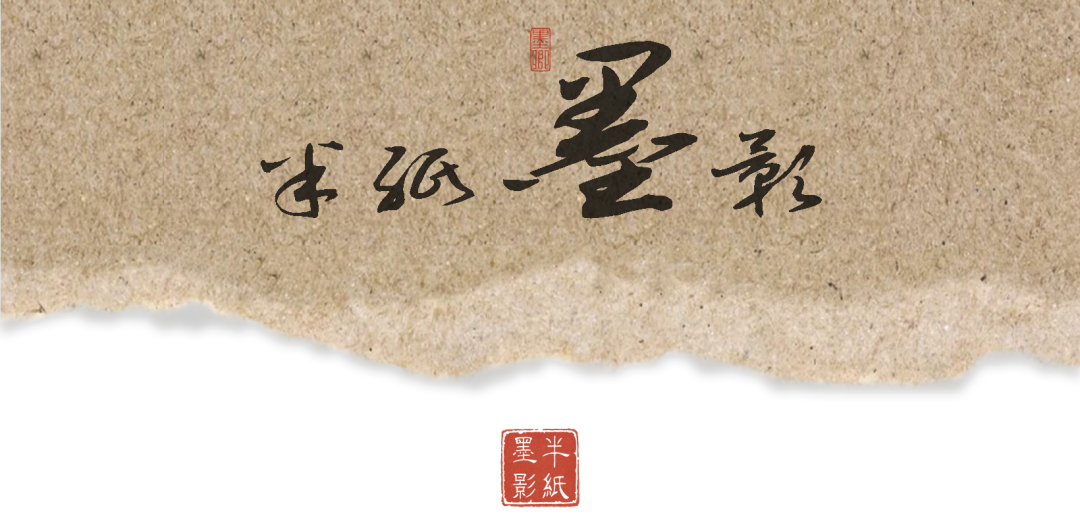 墨卿
半紙墨影
半紙
墨影